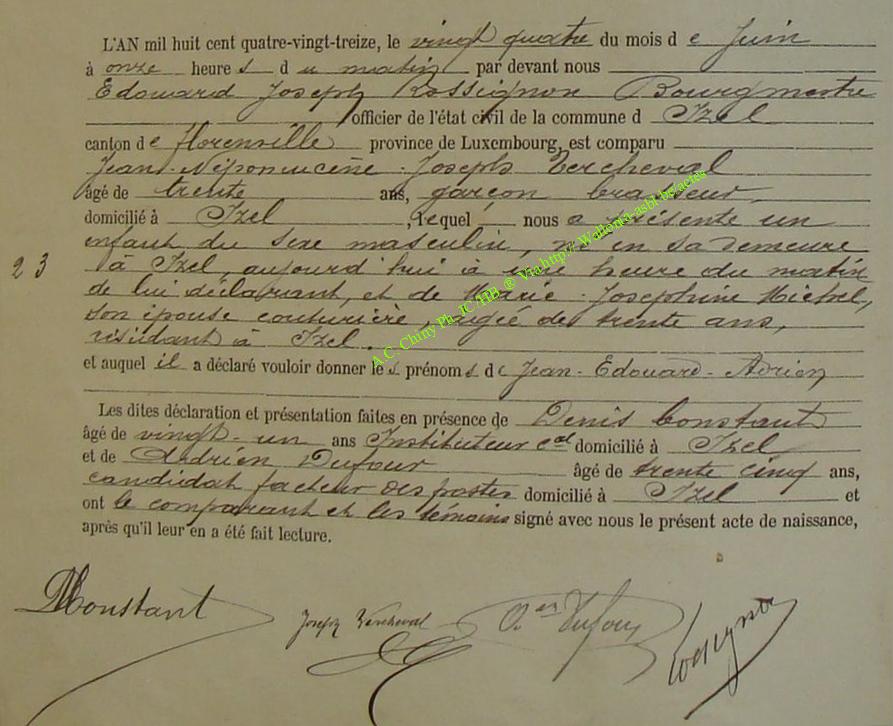 L'AN mil huit cent quatre-vingt-treize, le vingt quatre du mois d e Juin
à onze heure s d u matin par devant nous
Edouard Joseph Rossignon Bourgmestre
officier de l'état civil de la commune d Izel
canton d e florenville province de Luxembourg, est comparu
Jean-Népomucène-Joseph Vercheval
âgé de trente ans, garçon brasseur,
domicilié à Izel, lequel nous a présenté un
enfant du sexe masculin, né en sa demeure
23 à Izel, aujourd'hui à une heure du matin
de lui déclarant, et de Marie-Joséphine Michel,
son épouse couturière, agée de trente ans,
résidant à Izel.
et auquel il a déclaré vouloir donner le s prénom s de Jean-Edouard-Adrien
Les dites déclaration et présentation faites en présence de Denis Constant
âgé de vingt-un ans Instituteur cal domicilié à Izel
et de Adrien Dufour âgé de trente cinq ans,
candidat facteur des postes domicilié à Izel et
ont le comparant et les témoins signé avec nous le présent acte de naissance,
après qu'il leur en a été fait lecture.
DConstant Joseph Vercheval Aen Dufour Rossignon
A.C. Chiny Ph. JC HB ® Via http:// Wallonia-asbl-be/actes